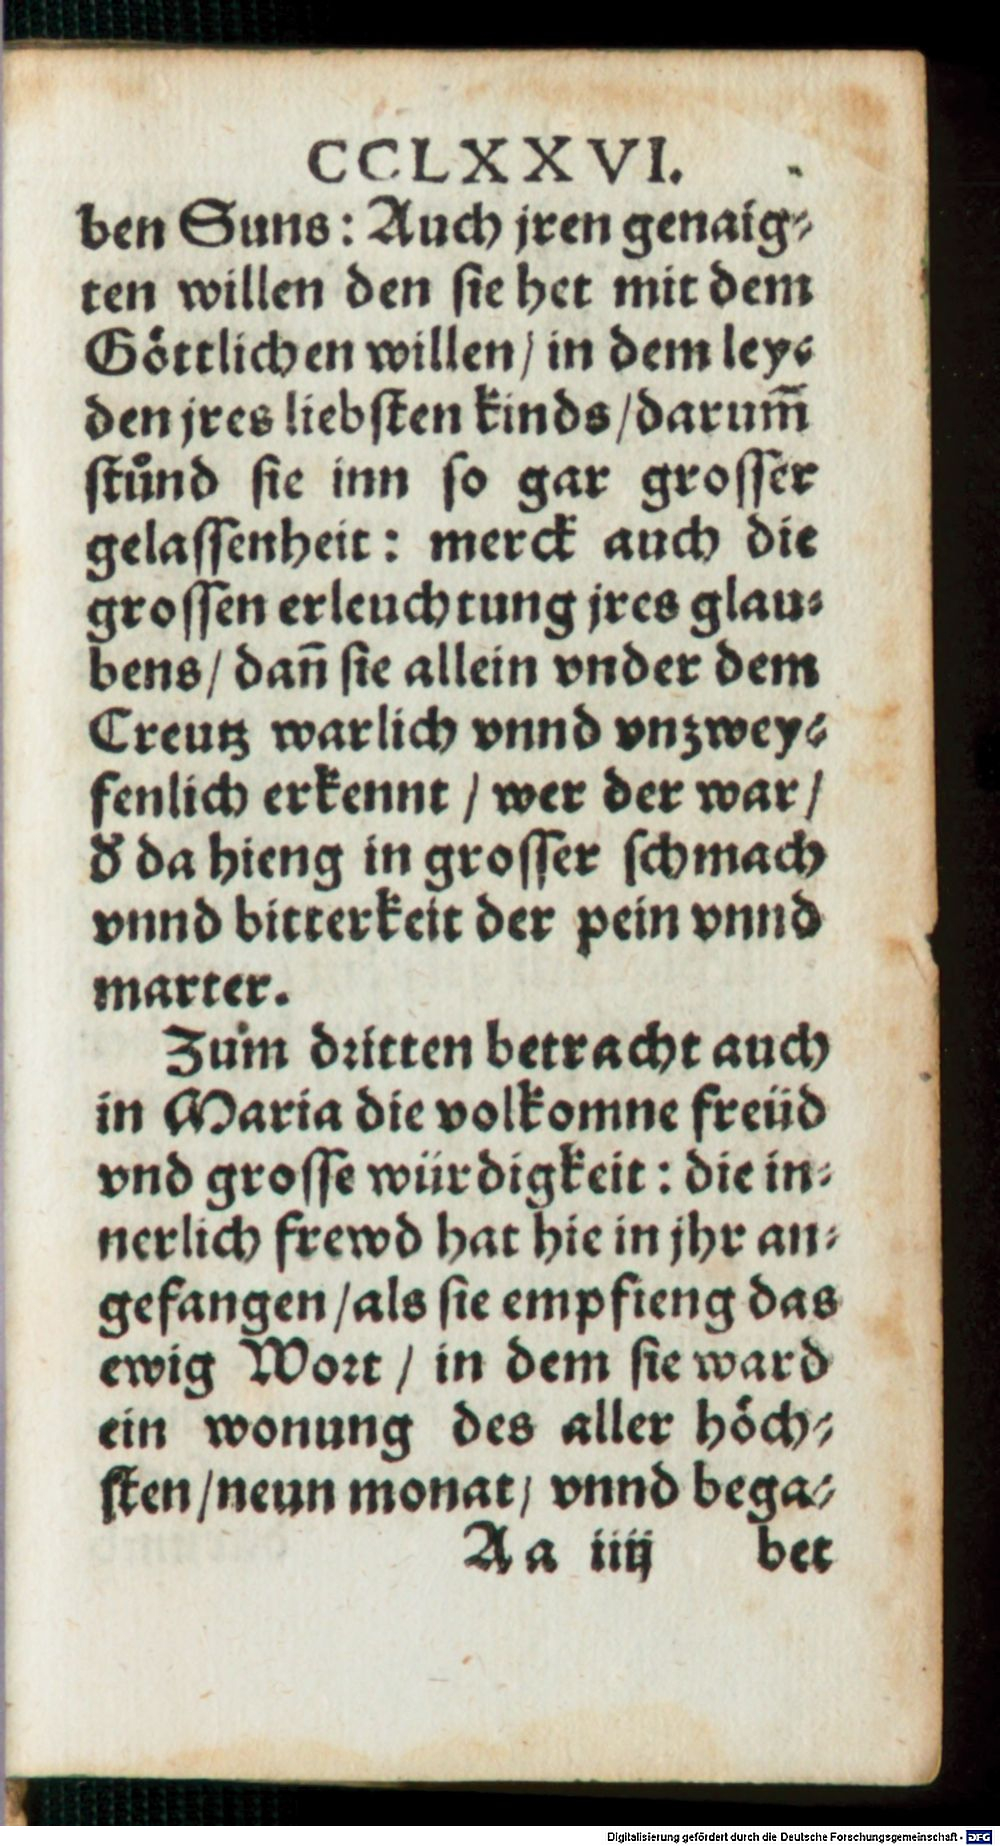 CCLXXVI.
ben Suns: Auch jren genaig⸗
ten willen den sie het mit dem
Göttlichen willen/ in dem ley⸗
den jres liebsten kinds/ darum̃
stůnd sie inn so gar grosser
gelassenheit: merck auch die
grossen erleuchtung jres glau⸗
bens/ dañ sie allein vnder dem
Creutz warlich vnnd vnzwey⸗
fenlich erkennt / wer der war/
d' da hieng in grosser schmach
vnnd bitterkeit der pein vnnd
marter.
Zům dritten betracht auch
in Maria die volkomne freüd
vnd grosse würdigkeit: die in⸗
nerlich frewd hat hie in jhr an⸗
gefangen/ als sie empfieng das
ewig Wort / in dem sie ward
ein wonung des aller höch⸗
sten/ neun monat/ vnnd bega⸗
Aa iiij bet
Digitalisierung gefördert durch die Deutsche Forschungsgemeinschaft - DFG